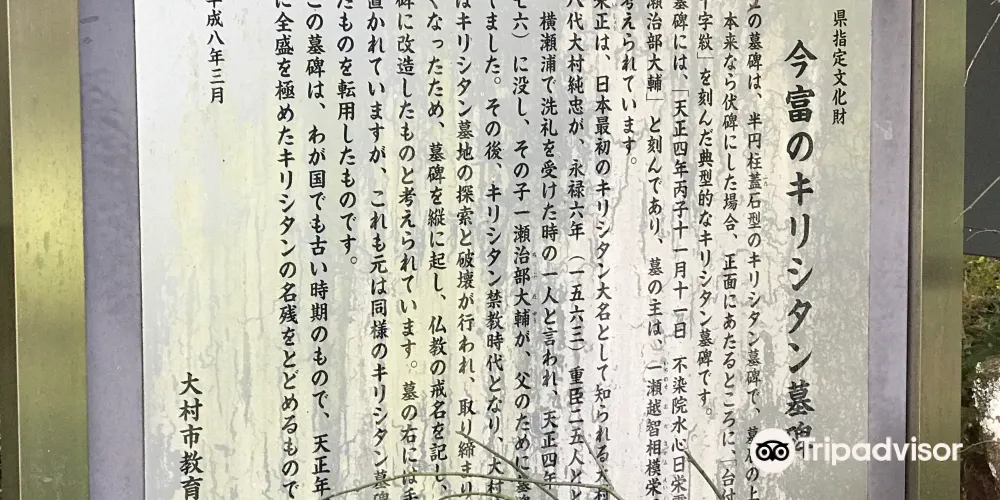 県指定文化財
今富のキリシタン墓碑
の墓碑は、半円柱蓋石型のキリシタン墓碑で、墓の上
本来なら伏碑にした場合、正面にあたるところに、「台付
十字紋」を刻んだ典型的なキリシタン墓碑です。
墓碑には、「天正四年丙子十一月十一日 不染院水心日栄霊
瀬治部大輔」と刻んであり、墓の主は、一瀬越智相模栄
考えられています。
栄正は、日本最初のキリシタン大名として知られる大村
八代大村純忠が、永禄六年(一五六三)重臣二五人とと
横瀬浦で洗礼を受けた時の一人と言われ、天正四年
七六)に没し、その子一瀬治部大輔が、父のために墓碑
ました。その後、キリシタン禁教時代となり、大村
はキリシタン墓地の探索と破壊が行われ、取り締まり
くなったため、墓碑を縦に起し、仏教の戒名を記し、
碑に改造したものと考えられています。墓の右には手
置かれていますが、これも元は同様のキリシタン墓碑
たものを転用したものです。
この墓碑は、わが国でも古い時期のもので、天正年
に全盛を極めたキリシタンの名残をとどめるもので
平成八年三月
大村市教育
Tripadvisor